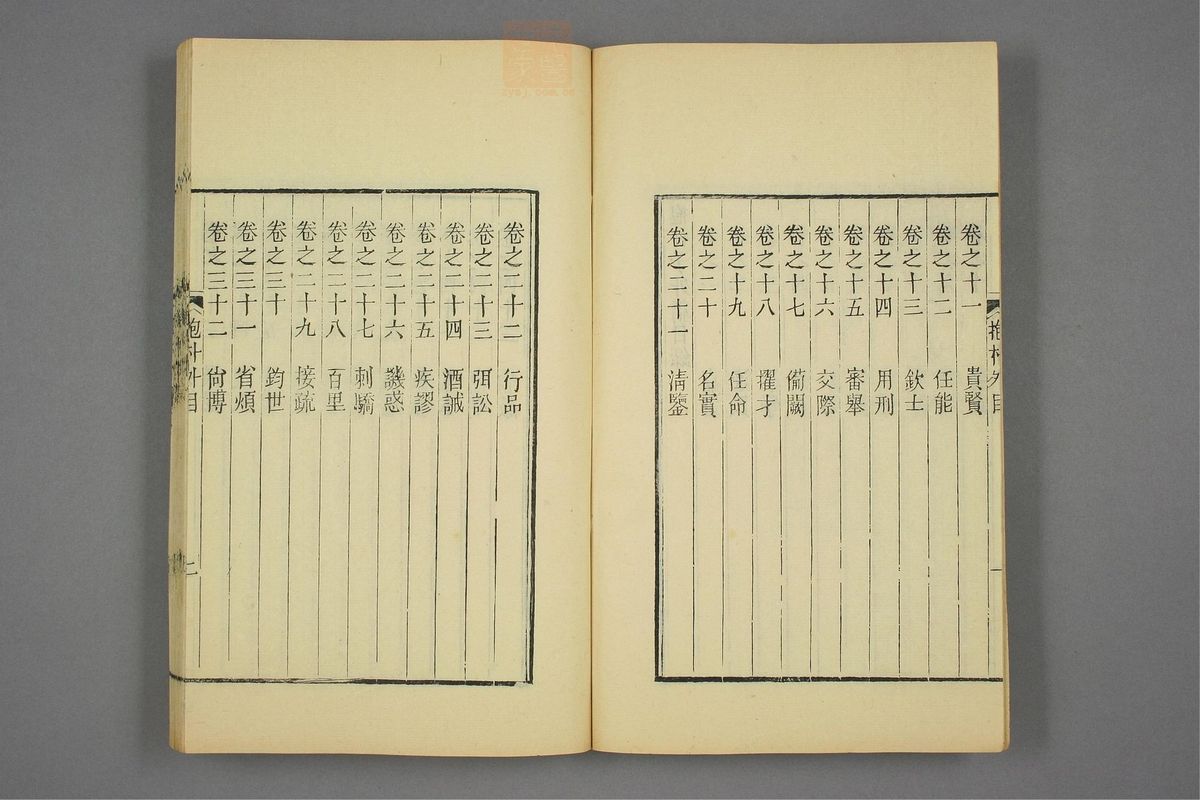 卷之十一 貴賢
卷之十二 任能
卷之十三 欽士
卷之十四 用刑
卷之十五 審舉
卷之十六 交際
卷之十七 僃闕
卷之十八 擢才
卷之十九 任命
卷之二十 名實
卷之二十一 清鑒
卷之二十二 行品
卷之二十三 弭訟
卷之二十四 酒誡
卷之二十五 疾謬
卷之二十六 譏惑
卷之二十七 刺驕
卷之二十八 百里
卷之二十九 接疏
卷之三十 鈞世
卷之三十一 省煩
卷之三十二 尙博
抱朴外目
二